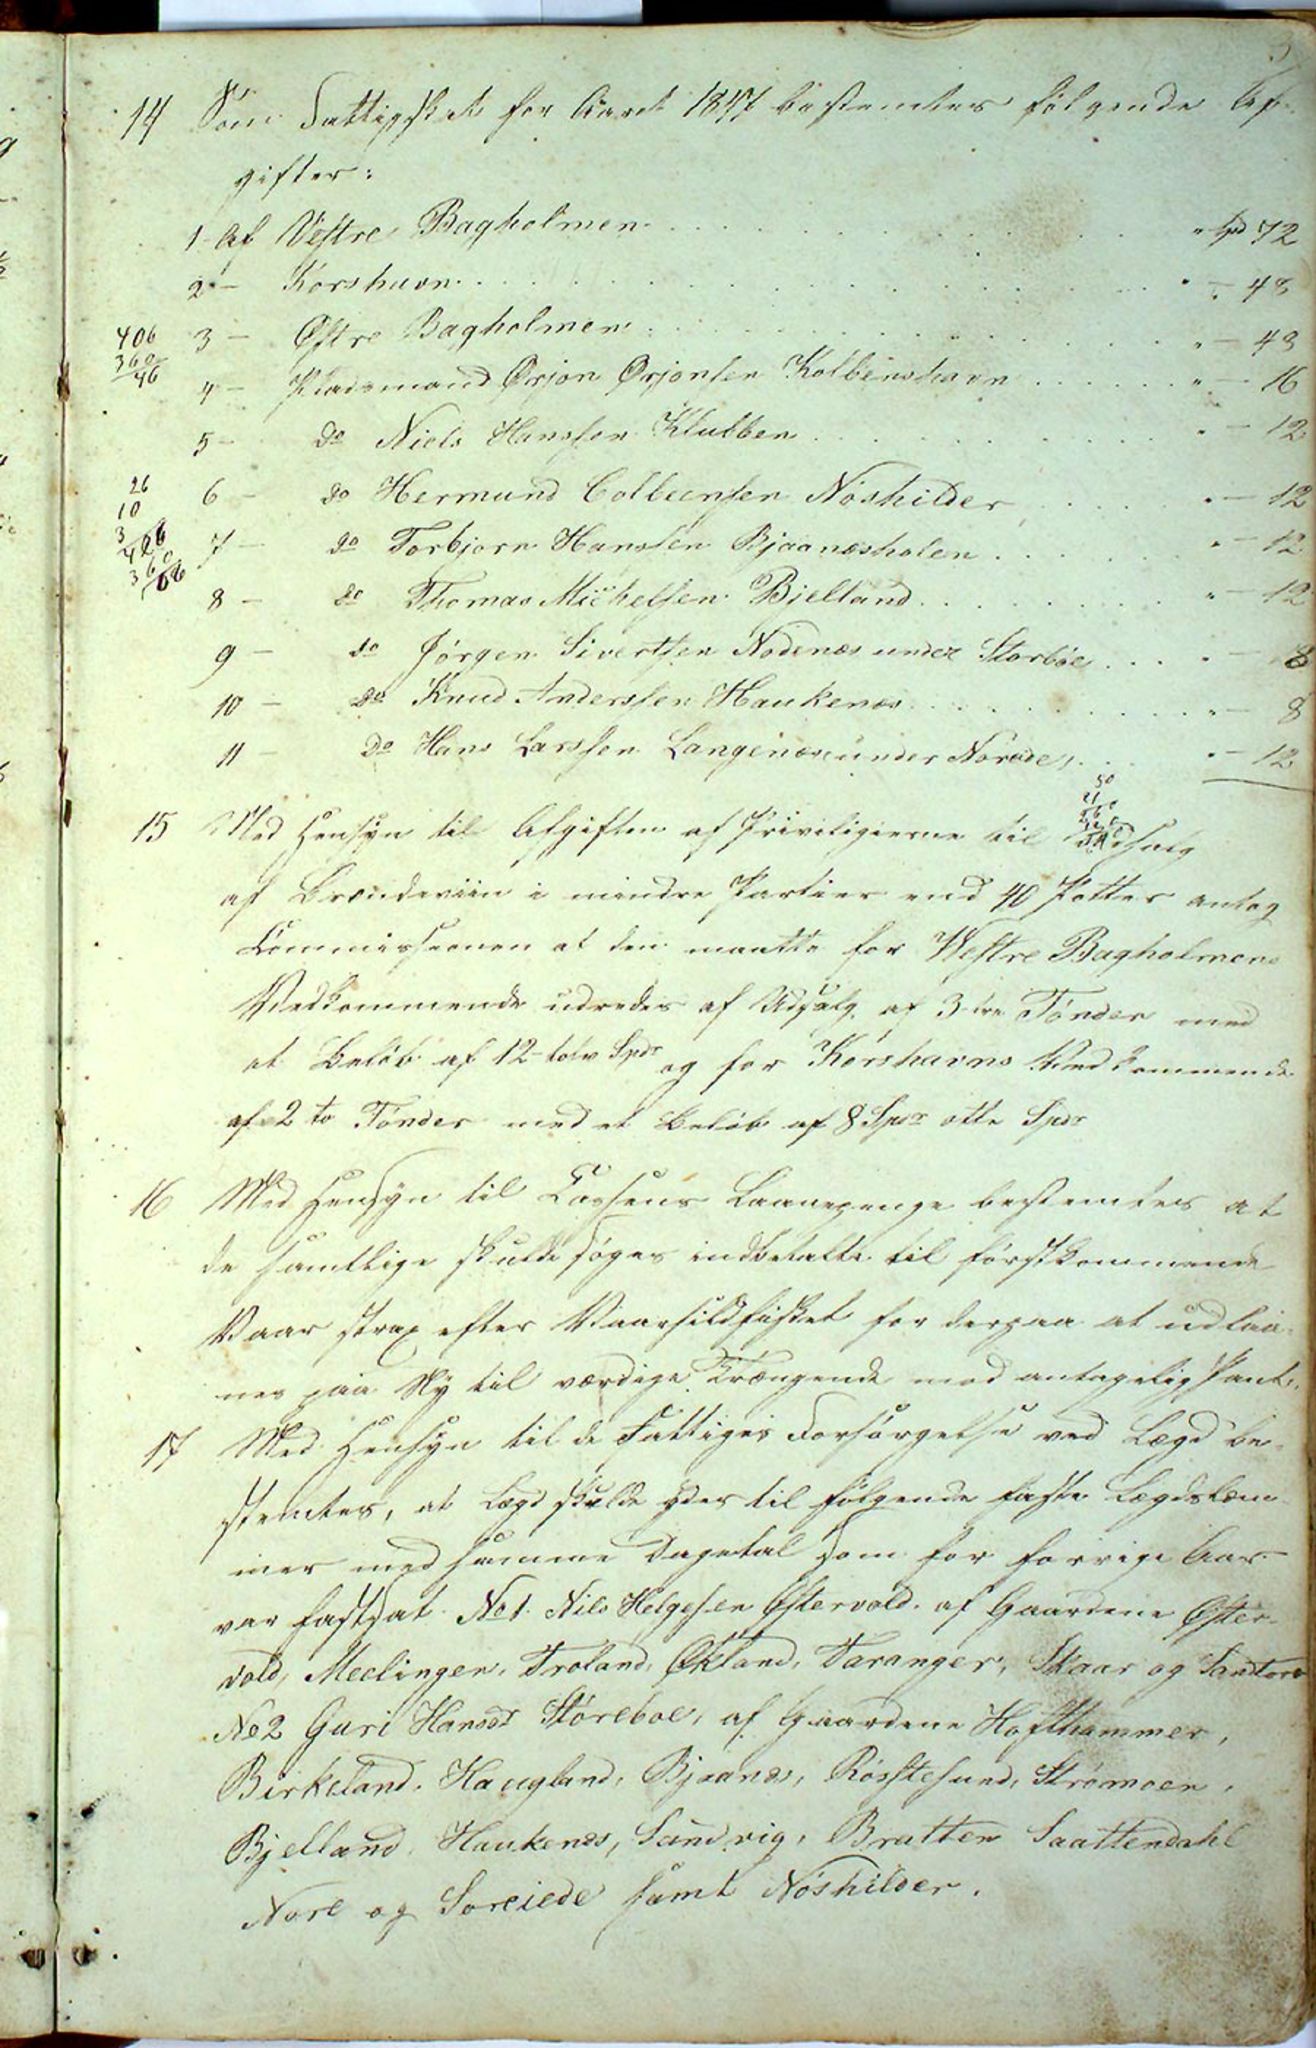 14 Som Fattigskat for Aaret 1847 bestemtes følgende Af-
gifter:
1 Af Vestre Bagholmen . . . " Spd 72
2 - Korshavn . . . " - 48
3 - Østre Bagholmen . . . " - 48
406
360
46
4 - Pladsmand Ørjan Ørjansen Kolbenshavn . . . " - 16
5 - do Niels Hanssen Klubben . . . " - 12
6 - do Hermund Colbeensen Nøshilder . . . " - 12
26
10
7 - do Torbjørn Hanssen Bjaanesholen . . . " - 12
8 - do Thomas Michelsen Bjelland . . . " - 12
9 - do Jørgen Sivertsen Nodenes under Storbøe . . . " - 8
10 - do Knud Anderssen Haukenæs . . . " - 8
11 - do Hans Larssen Langenæs under Norede, . . . " - 12
15 Med Hensyn til Afgiften af Privilegierne til Udsalg
af Brændeviin i mindre Partier end 40 Potter antog
Commissionen at den maatte for Westre Bagholmens
Vedkommende udredes af Udsalg af 3 tre Tønder med
et Beløb af 12 - tolv Spdr og for Korshavns Vedkommende
af 2 to Tønder med et Beløb af 8 Spdr otte Spdr
16 Med Hensyn til Cassens Laanepenge bestemtes at
de samtlige skulde søges indbetalte til førstkommende
Vaar strax efter Vaarsildfisket for derpaa at udlaa-
nes paa Ny til værdige Trængende mod antagelig Pant.
17 Med Hensyn til de Fattiges Forsørgelse ved Lægd be-
stemtes, at Lægd skulde ydes til følgende faste Lægdslem-
mer med samme Dagetal som for forrige Aar
var fastsat. No 1. Nils Helgesen Østervold. af Gaardene Øster-
vold, Meclingen, Troland, Økland, Taranger, Skaar og Sandtorv
No 2 Guri Hansdr Størebøe, af Gaardene Hofthammer,
Birkeland. Haugland, Bjaanæs, Røsstesund, Strømoen,
Bjelland, Haukenæs, Sandvig, Bratten Saattendahl
Nore og Soreiede samt Nøshilder.